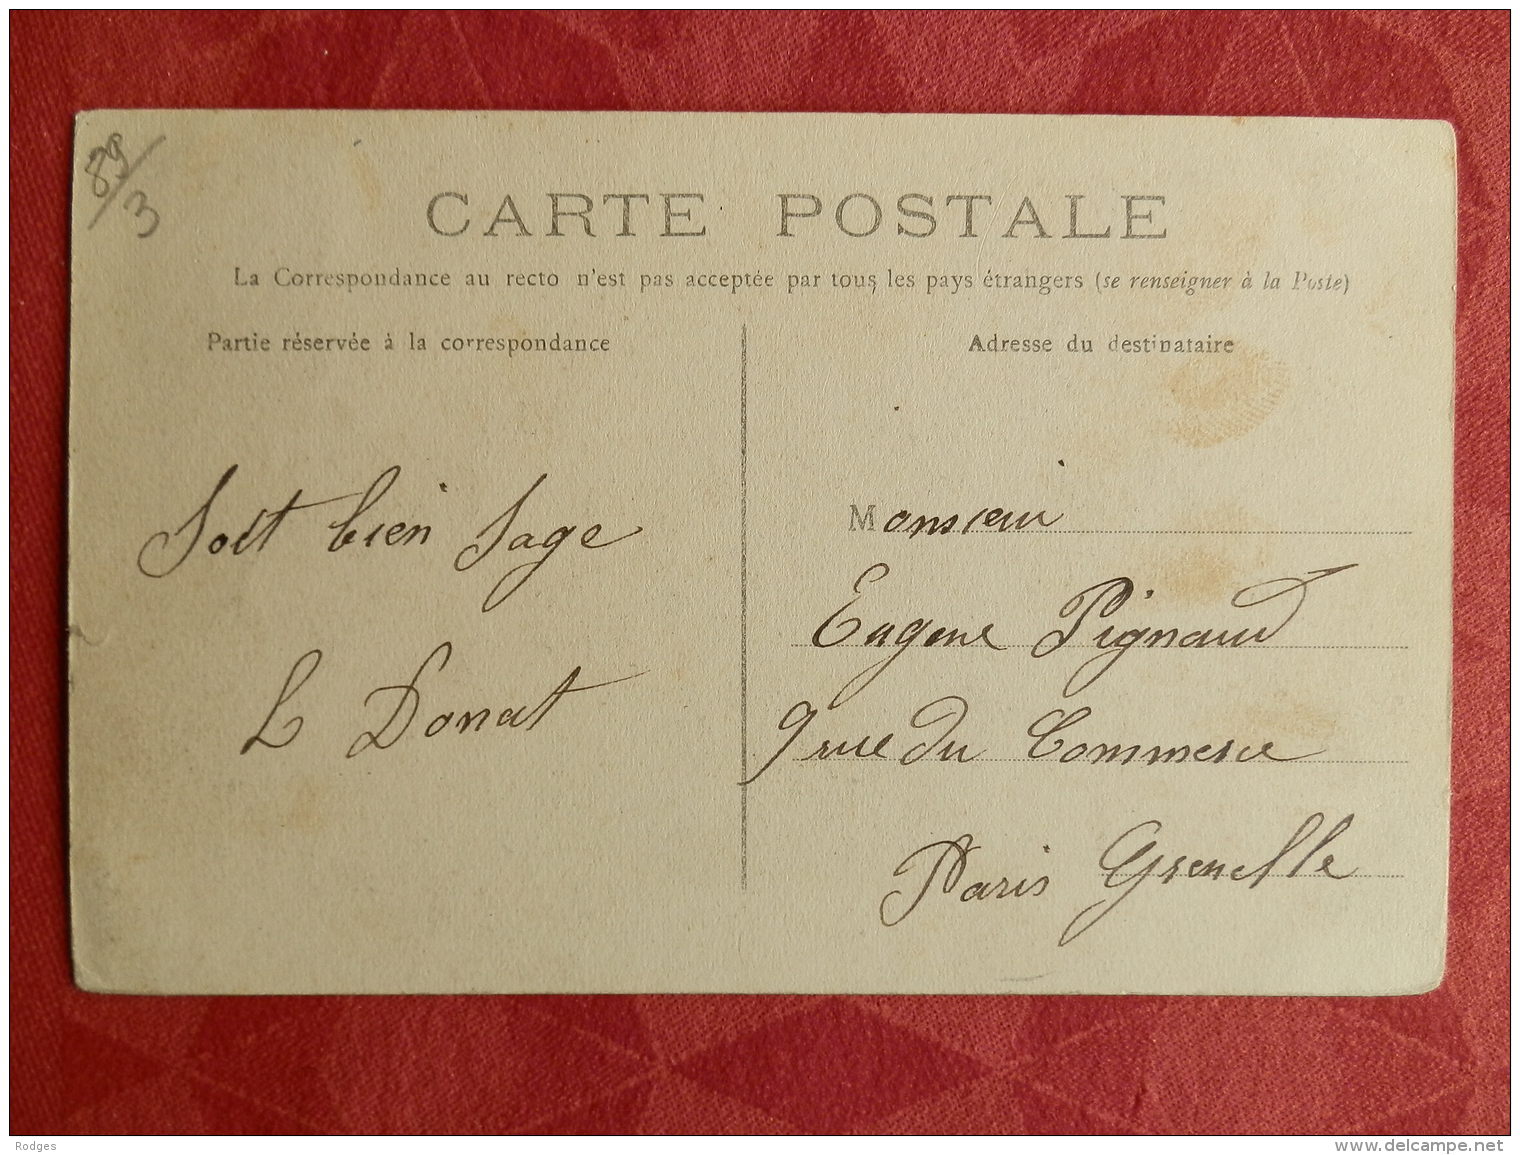 89/3
CARTE POSTALE
La Correspondance au recto n'est pas acceptée par tous les pays étrangers (se renseigner à la Poste)
Partie réservée à la correspondance
Adresse du destinataire
Soit bien Sage
L Donat
Monsieur
Eugene Pignaud
9 rue du Commerce
Paris Grenelle
Rodges
www.delcampe.net